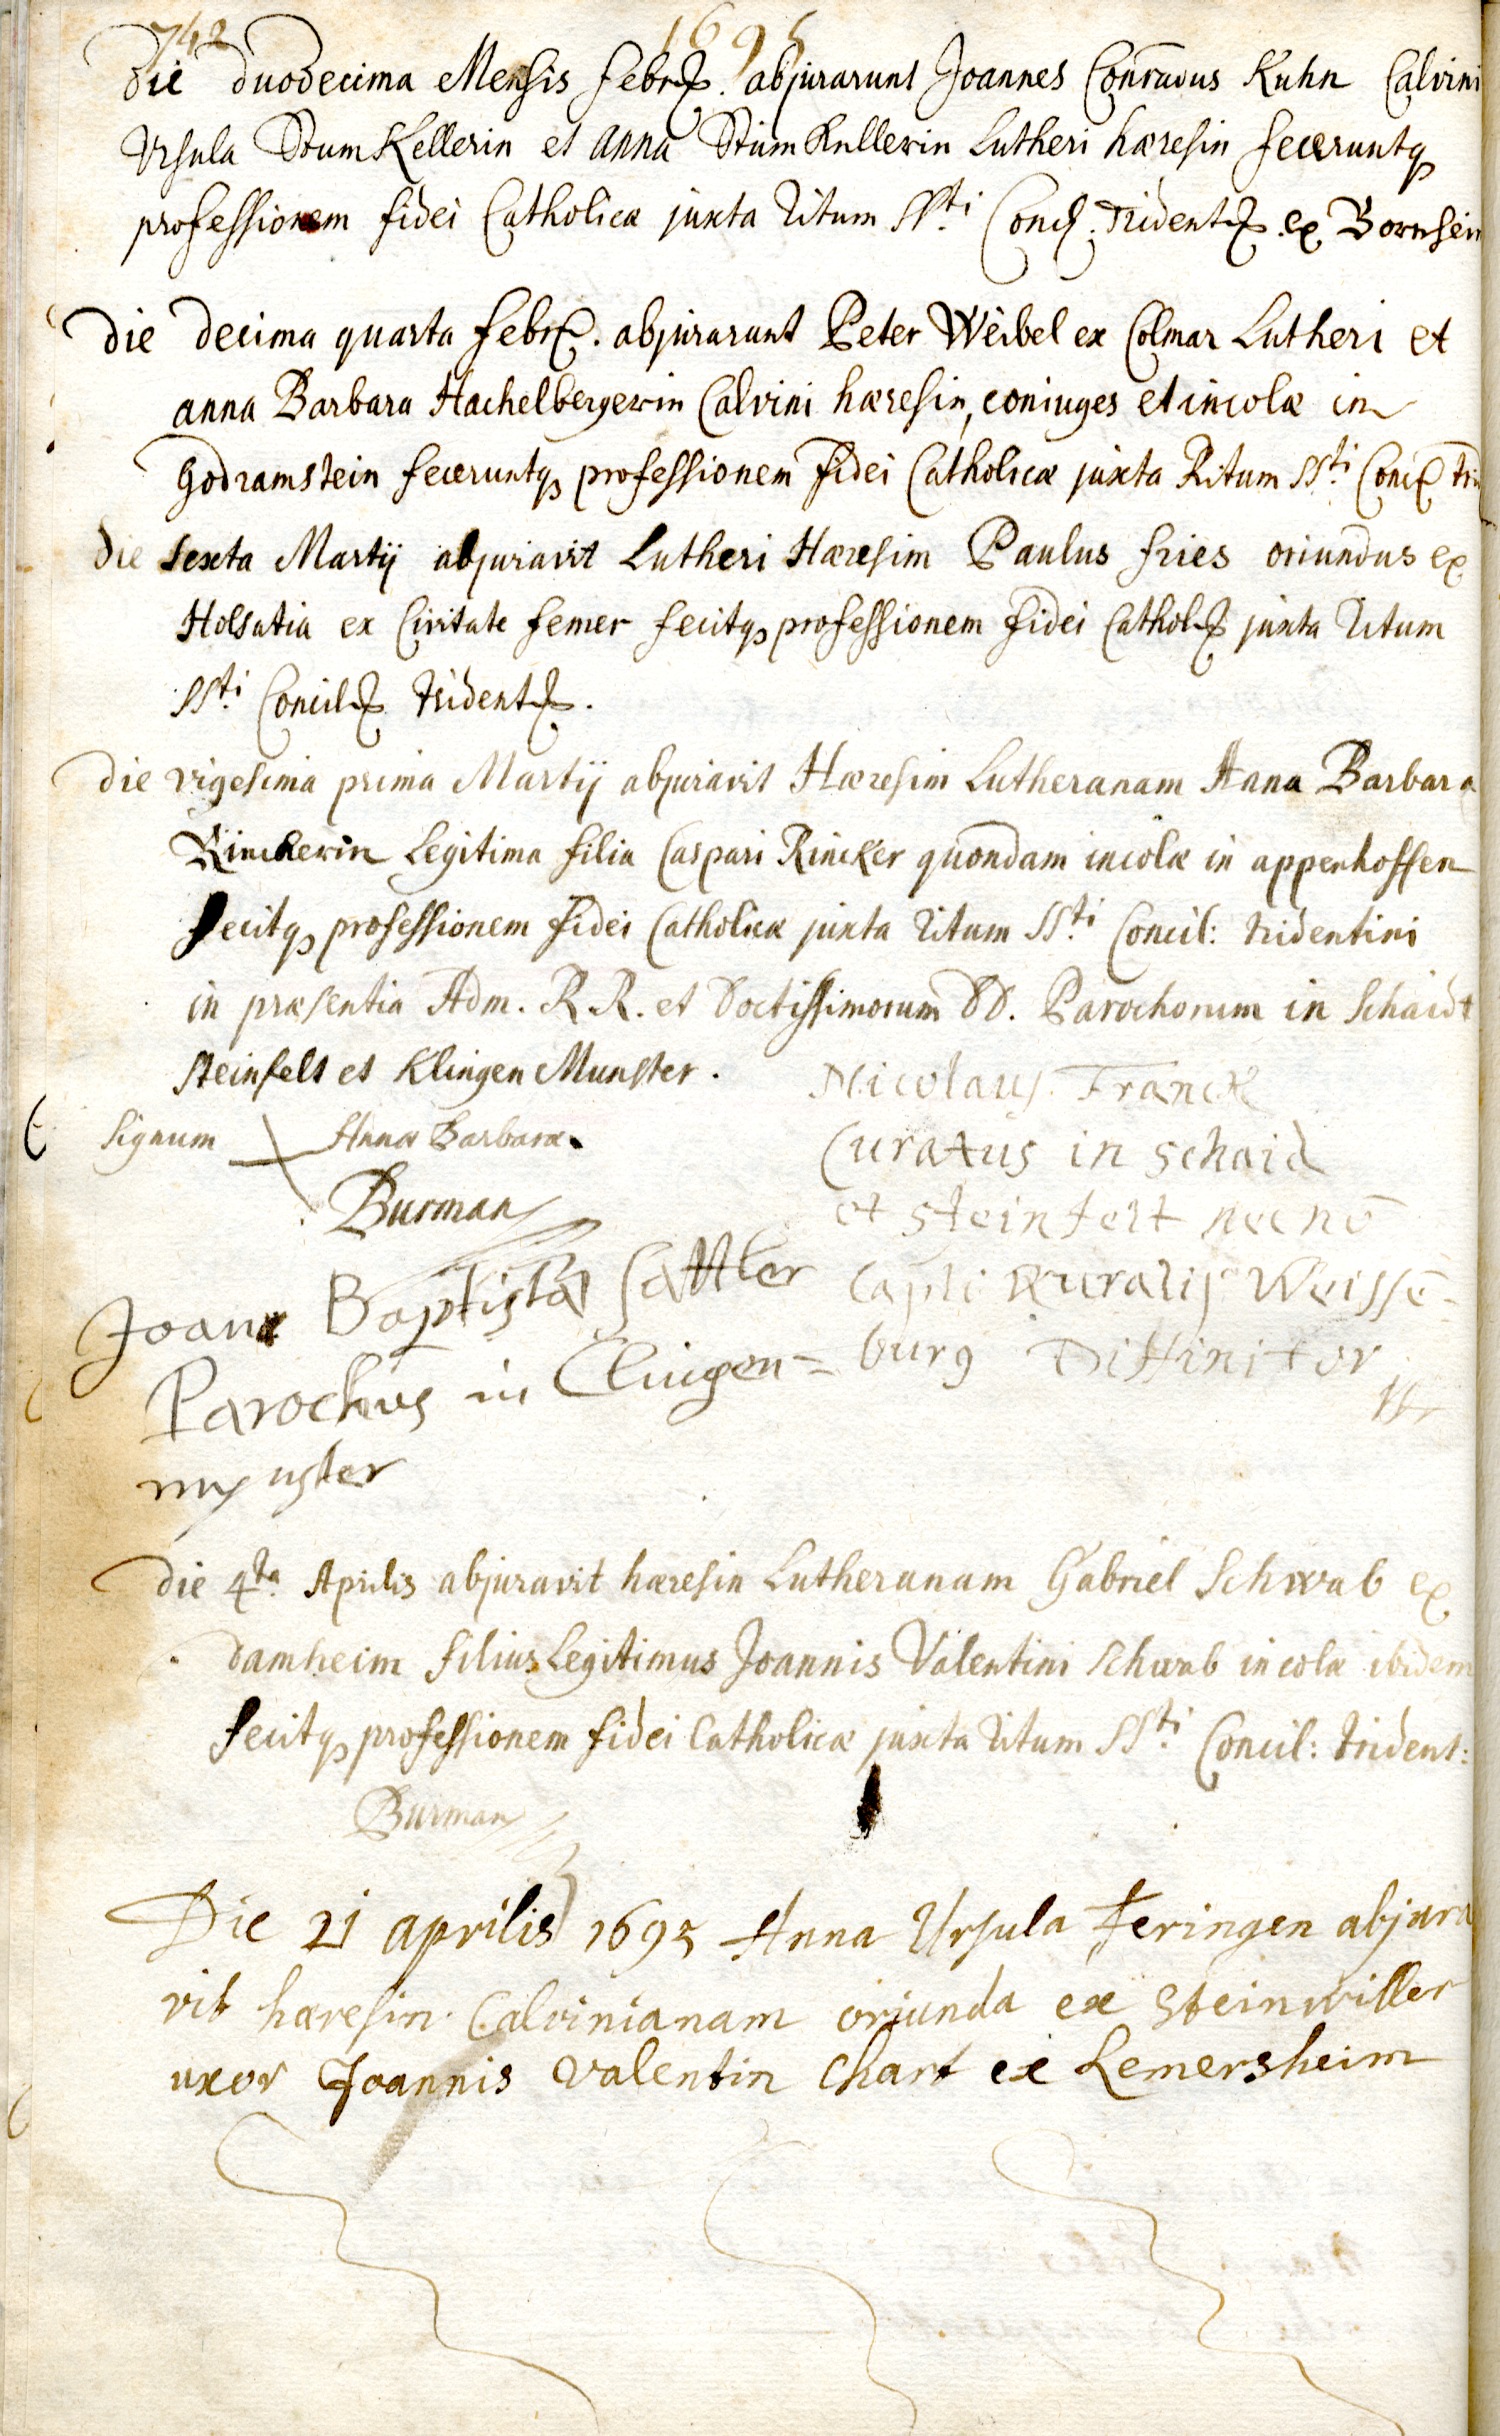 742 1695
Die duodecima Mensis febr. abjurarunt Joannes Conradus Kuhn Calvini
Ursula StumKellerin et anna StumKellerin Lutheri hæresin feceruntq
professionem fidei Catholicæ juxta Ritum SSti Conc. Trident. ex Bornhein
Die decima quarta febr. abjurarunt Peter Weibel ex Colmar Lutheri et
anna Barbara Hachelbergerin Calvini hæresin, coniuges et incolæ in
Godramstein feceruntq professionem fidei Catholicæ juxta Ritum SSti Conc. Tri
Die sexta Martij abjuravit Lutheri Hæresim Paulus fries oriundus ex
Holsatia ex Civitate femer fecitq professionem fidei Cathol. juxta Ritum
SSti Concil. Trident.
Die vigesima prima Martij abjuravit Hæresim Lutheranam Anna Barbara
Rinckerin Legitima filia Caspari Rincker quondam incolæ in appenhoffen
fecitq professionem fidei Catholicæ juxta Ritum SSti Concil: Tridentini
in præsentia Adm. R.R. et Doctissimorum DD. Parochorum in Schaidt
Steinfelt et Klingen Munster.
Signum Annæ Barbaræ
Burman
Nicolaus Franck
Curatus in schaid
et steinfelt necnō
Capli Ruralis Weissē-
burg Diffinitor
Joan Baptista Sattler
Parochus in Clingen=
mynster
Die 4ta Aprilis abjuravit hæresin Lutheranam Gabriel Schwab ex
Damheim filius Legitimus Joannis Valentini Schwab incolæ ibidem
fecitq professionem fidei Catholicæ juxta Ritum SSti Concil: Trident:
Burman
Die 21 aprilis 1695 Anna Ursula feringen abjura
vit hæresin Calvinianam oriunda ex Steinwiller
uxor Joannis valentin Chart ex Lemersheim